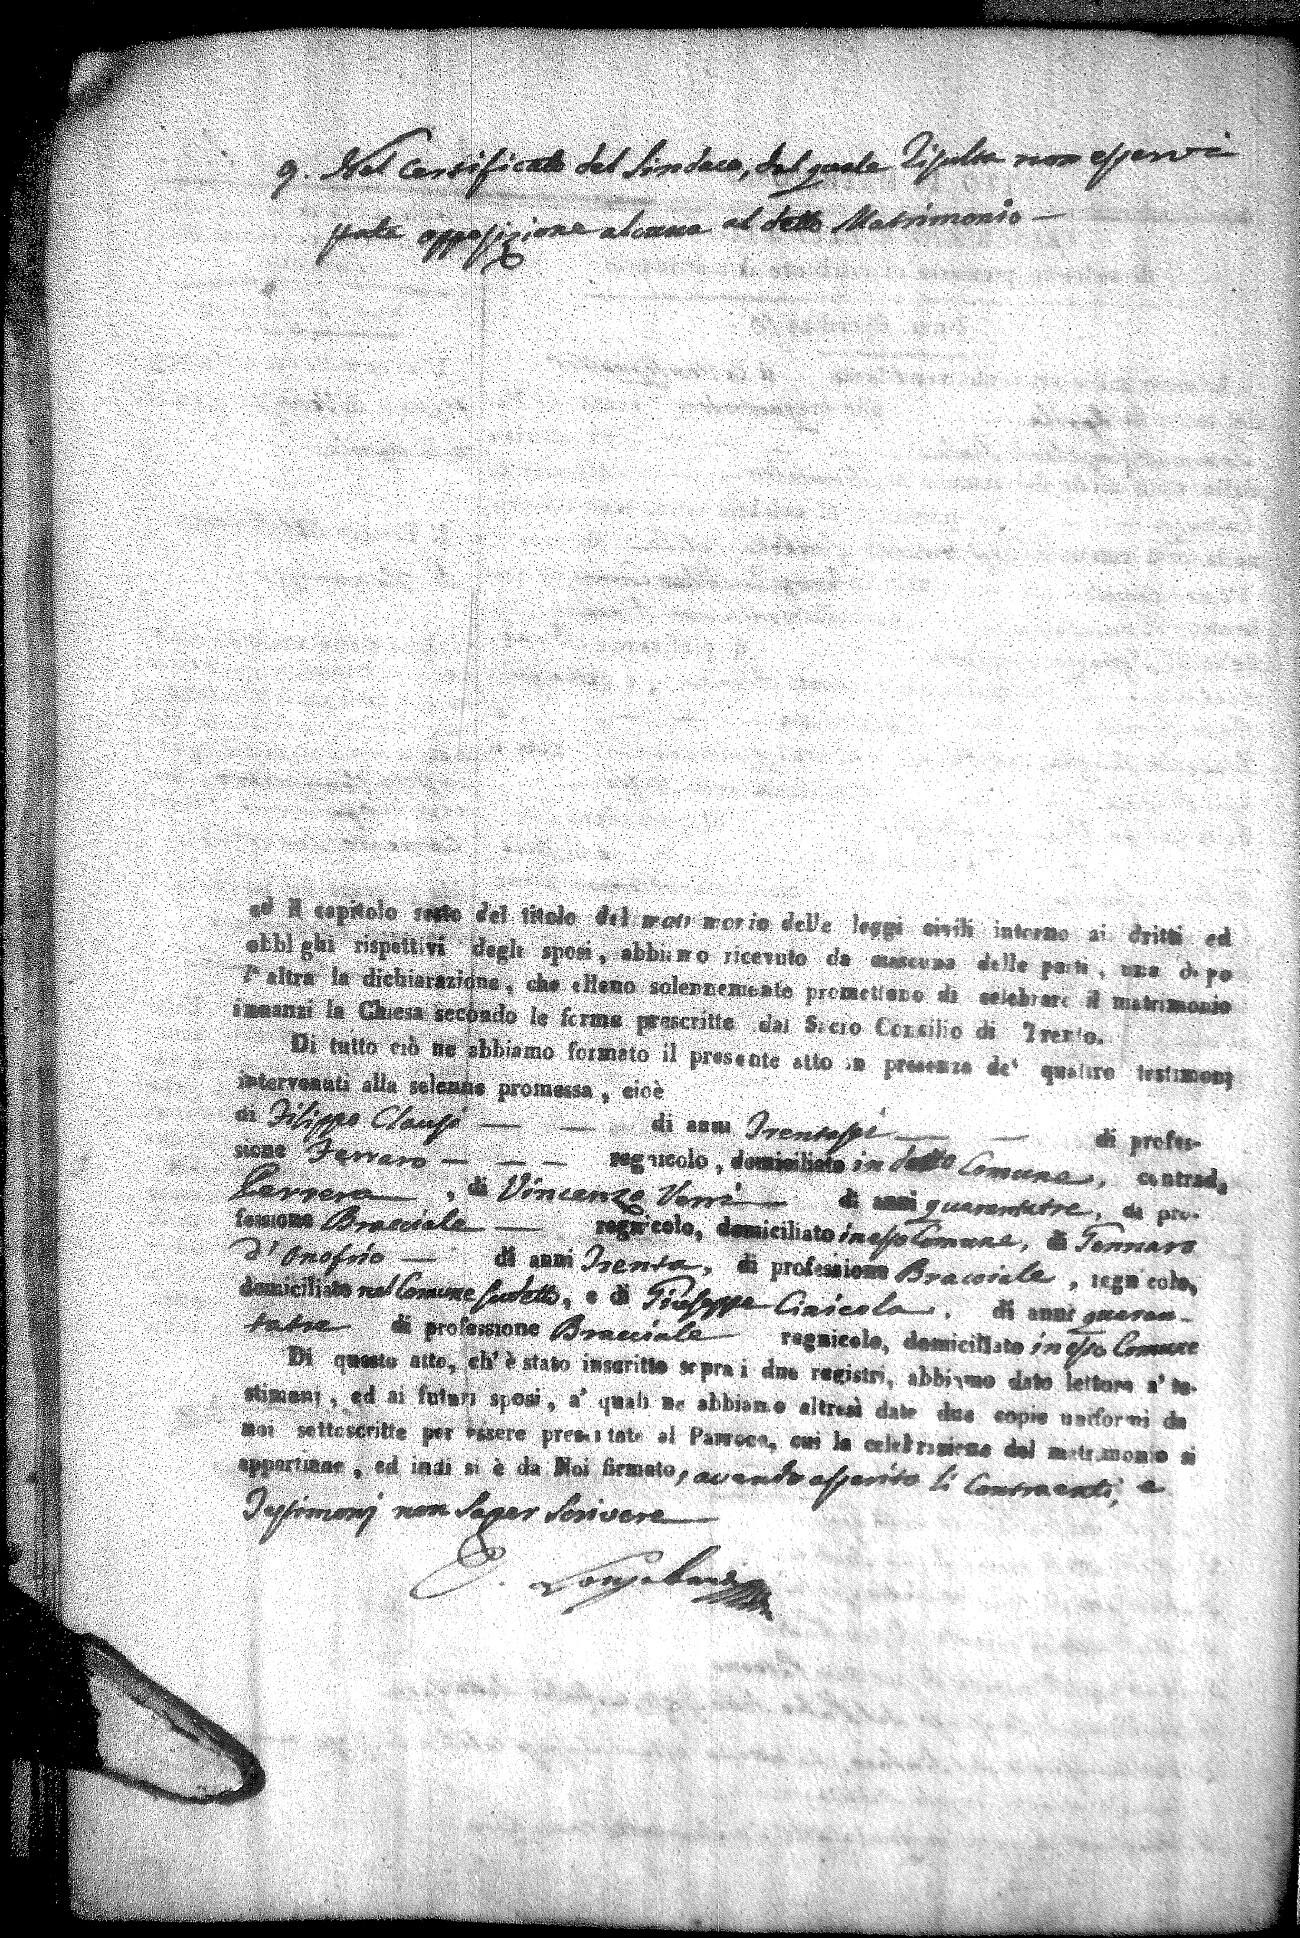 9. Nel Certificato del Sindaco, dal quale risulta non esservi
stata opposizione alcuna al detto Matrimonio —
ed il capitolo sesto del titolo del matrimonio delle leggi civili intorno ai dritti ed
obblighi rispettivi degli sposi, abbiamo ricevuto da ciascuna delle parti, una dopo
l'altra la dichiarazione, che elleno solennemente promettono di celebrare il matrimonio
innanzi la Chiesa secondo le forme prescritte dal Sacro Concilio di Trento.
Di tutto ciò ne abbiamo formato il presente atto in presenza de' quattro testimonj
intervenuti alla solenne promessa, cioè
di Filippo — — di anni Trentasei — — di profes-
sione Ferraro — — — regnicolo, domiciliato in detto Comune, contrada
, di Vincenzo — di anni quarantatre, di pro-
fessione Bracciale — regnicolo, domiciliato in esso Comune, di Gennaro
D'Onofrio — di anni Trenta, di professione Bracciale, regnicolo,
domiciliato nel Comune sudetto, e di Giuseppe, di anni quaran-
tatre di professione Bracciale regnicolo, domiciliato in esso Comune
Di questo atto, ch'è stato inscritto sopra i due registri, abbiamo dato lettura a' te-
stimonj, ed ai futuri sposi, a' quali ne abbiamo altresì date due copie uniformi da
noi sottoscritte per essere presentate al Parroco, cui la celebrazione del matrimonio si
appartiene, ed indi si è da Noi firmato, avendo asserito li Contraenti, e
Testimonj non saper scrivere